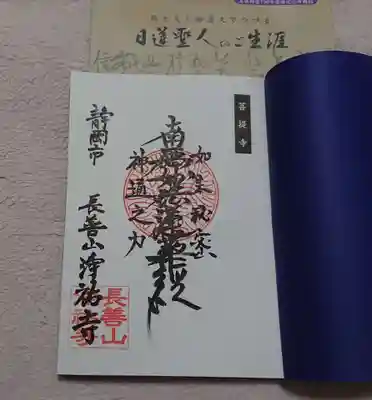 日蓮聖人のご生涯
菩提寺
如来秘密
南無妙法蓮華経
神通之力
静岡市
長善山浄祐寺
長善山